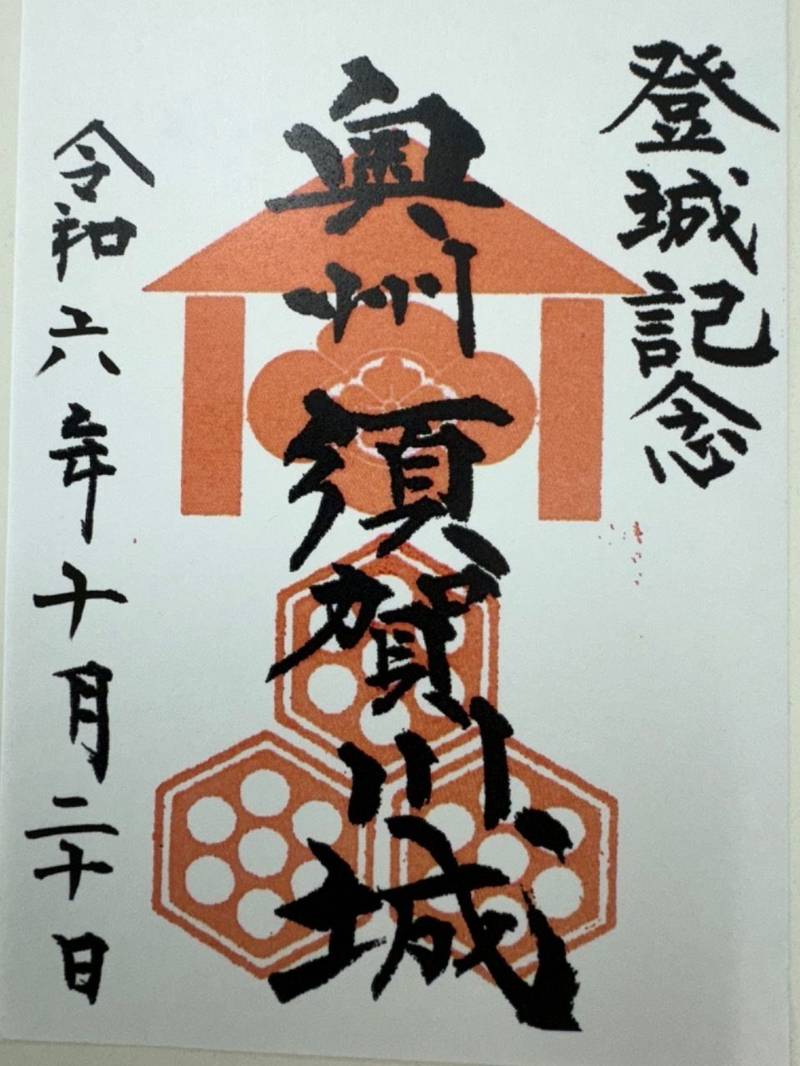 登城記念
奥州須賀川城
令和六年十月二十日